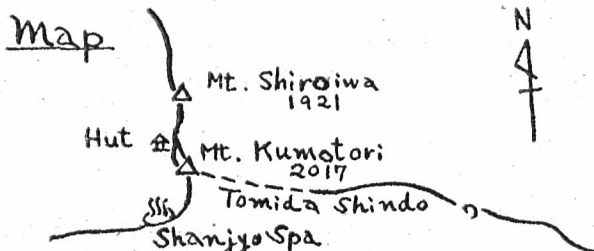 Map
N
Mt. Shiroiwa
1921
Hut
Mt. Kumotori
2017
Tomida Shindo
Shanjyo Spa